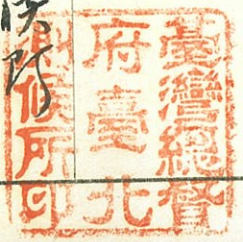 臺灣總督
府臺北
測候所印